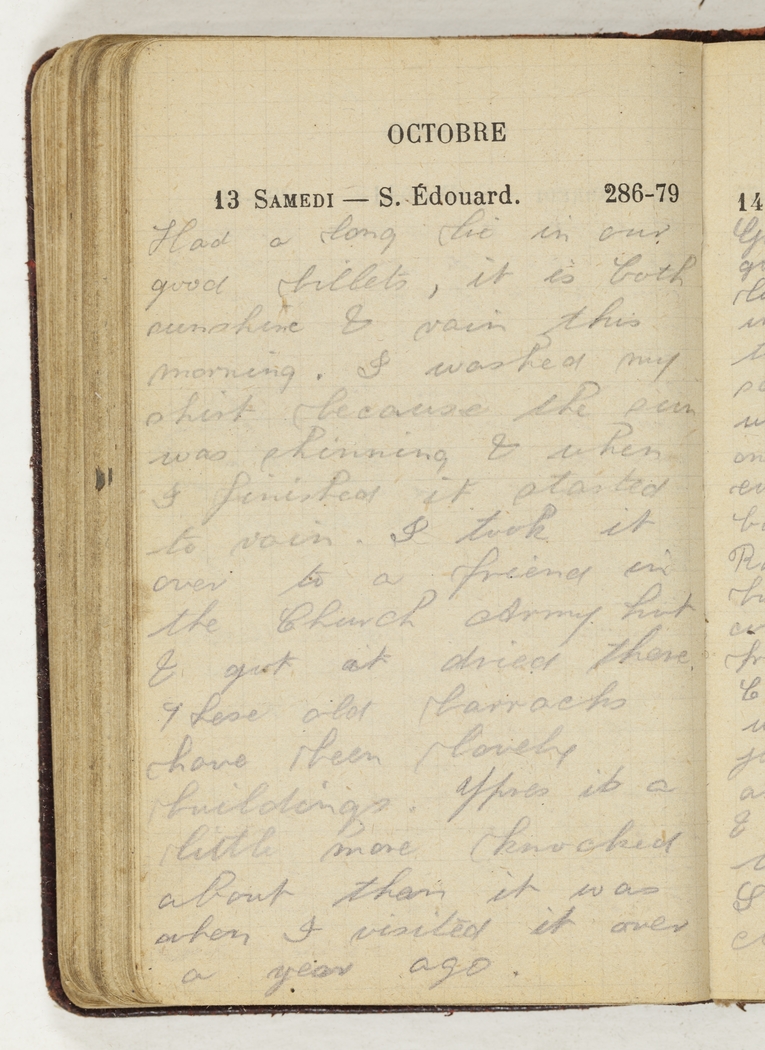 OCTOBRE
13 SAMEDI — S. Édouard. 286-79
Had a long lie in our
good billets, it is both
sunshine & rain this
morning. I washed my
shirt because the sun
was shinning & when
I finished it started
to rain. I took it
over to a friend in
the Church Army hut
& got it dried there
These old barracks
have been lovely
buildings. Ypres is a
little more knocked
about than it was
when I visited it over
a year ago.
14